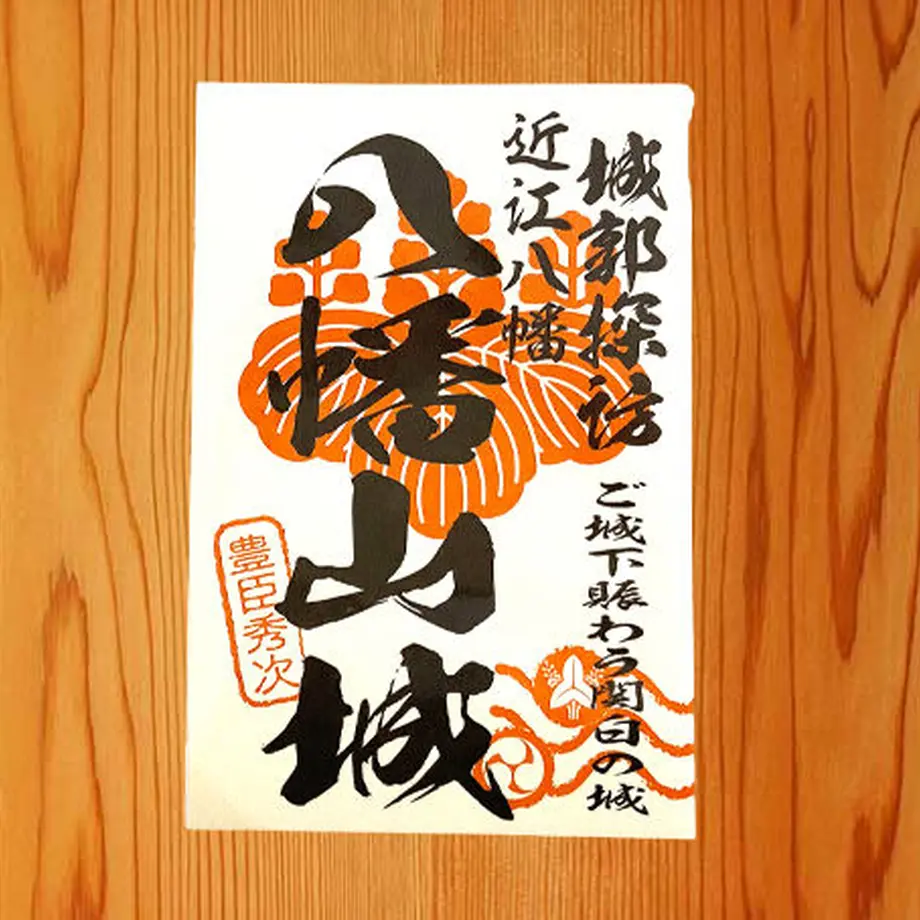 城郭探訪
ご城下賑わう関白の城
近江八幡
八幡山城
豊臣秀次